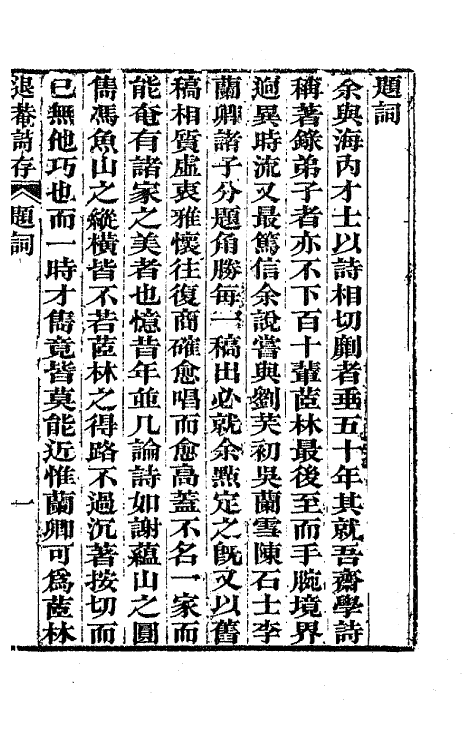 題詞
余與海內才士以詩相切劘者垂五十年其就吾齋學詩
稱著錄弟子者亦不下百十輩茝林最後至而手腕境界
迥異時流又最篤信余說嘗與劉芙初吳蘭雪陳石士李
蘭卿諸子分題角勝每一稿出必就余㸃定之旣又以舊
稿相質虛衷雅懷往復商確愈唱而愈高蓋不名一家而
能奄有諸家之美者也憶昔年並几論詩如謝蘊山之圓
雋馮魚山之縱橫皆不若茝林之得路不過沉著按切而
已無他巧也而一時才雋竟皆莫能近惟蘭卿可爲茝林
退菴詩存 題詞 一